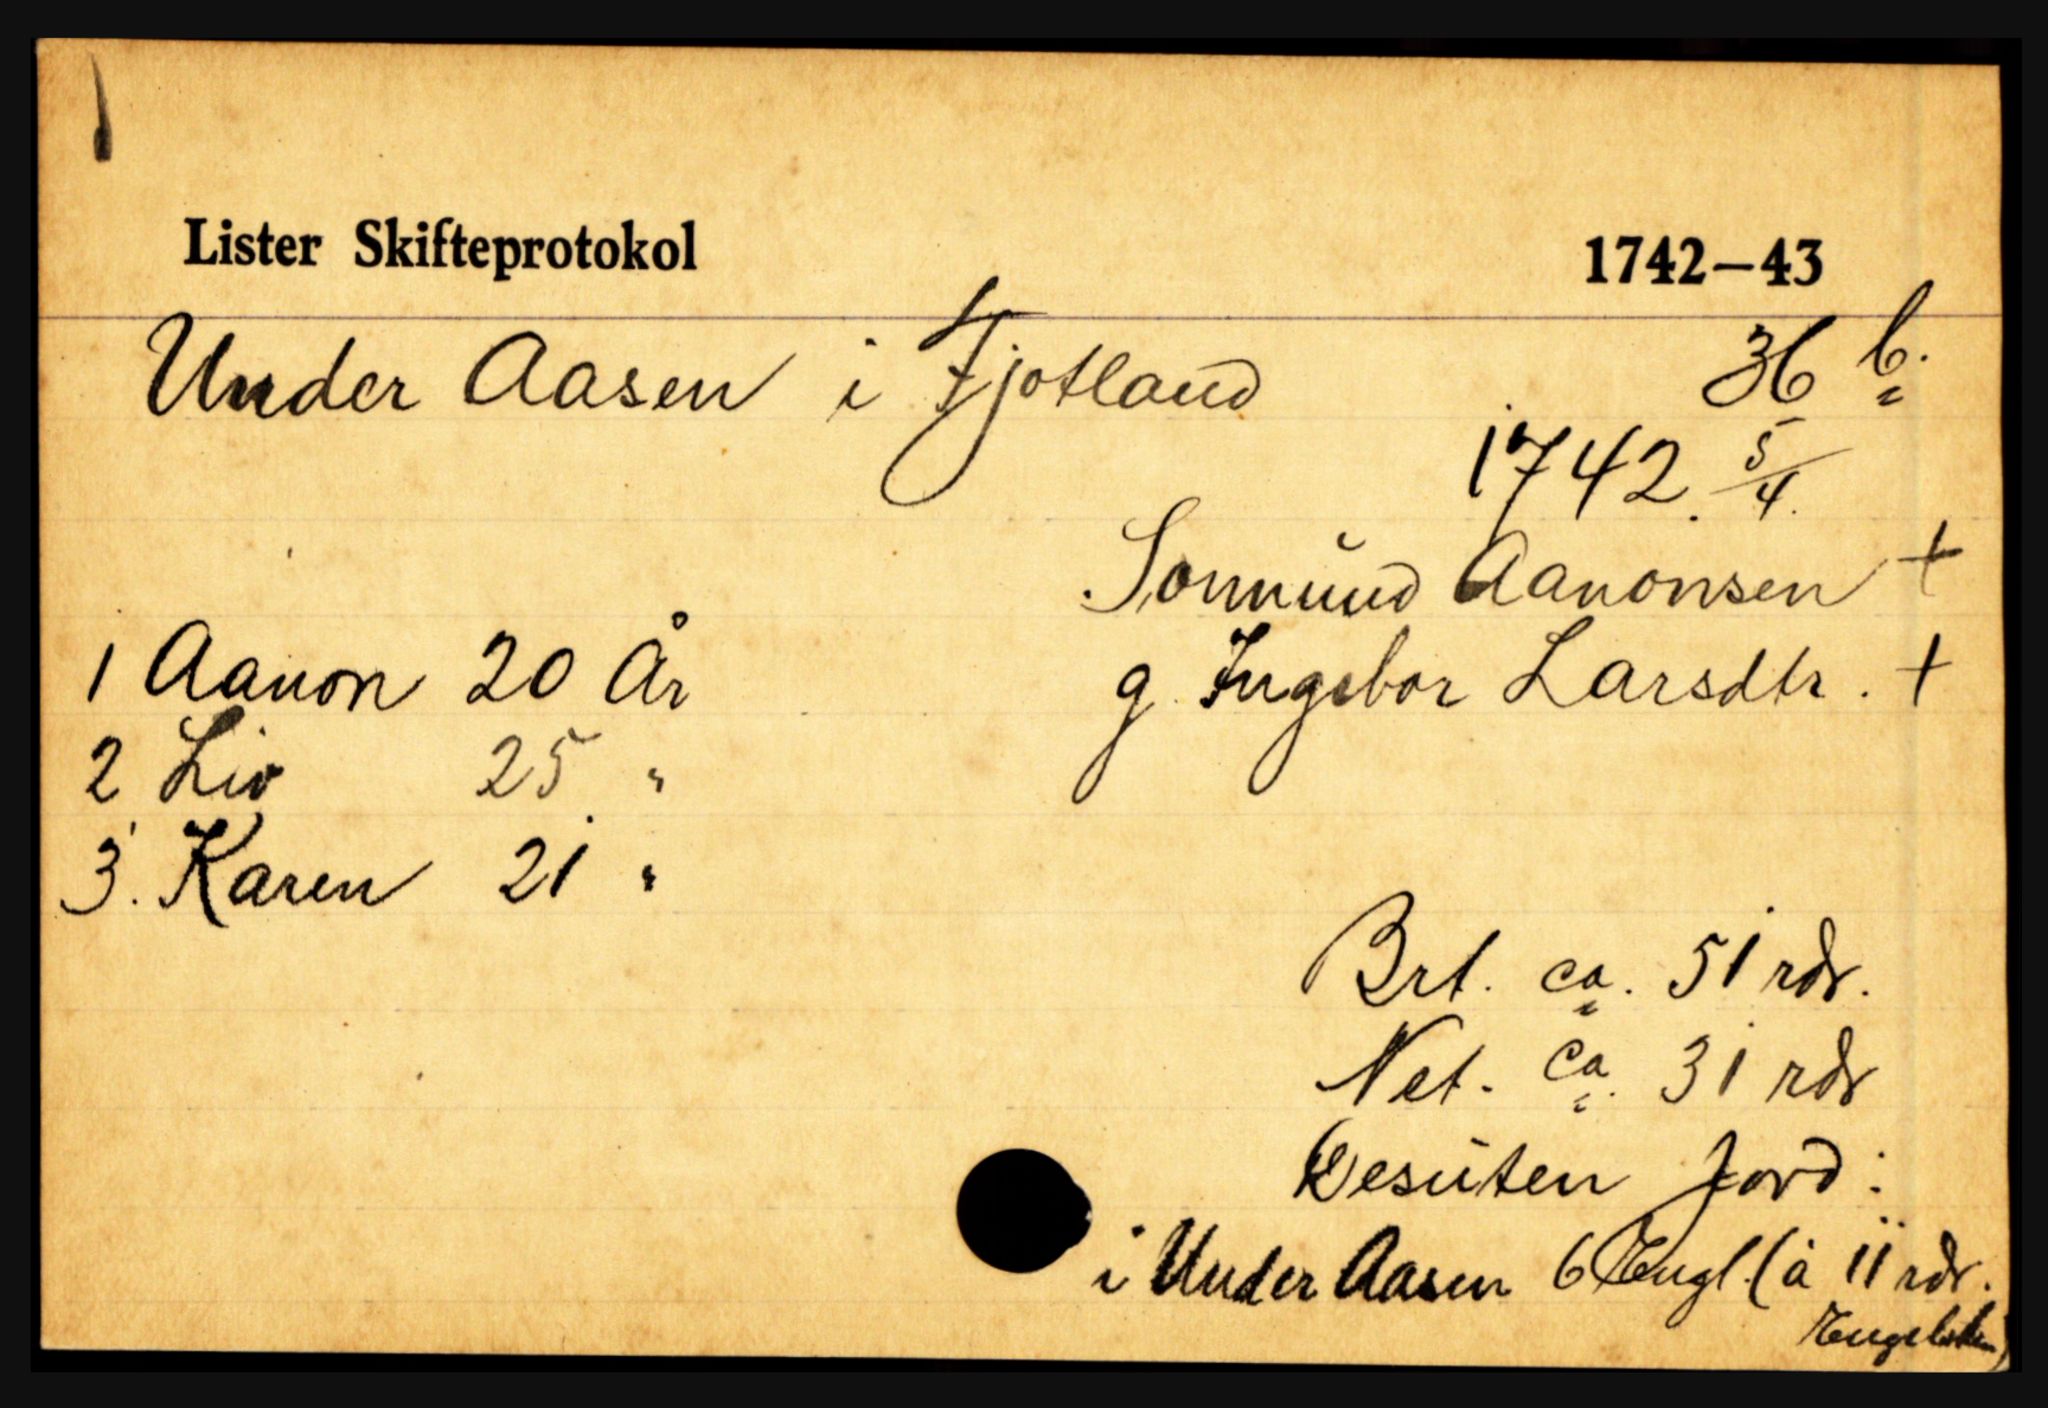 Lister Skifteprotokol 1742–43
Under Aasen i Fjotland 36 b.
1742. 5/4.
Sonmund Aanonsen +
1 Aanon 20 År g. Ingebor Larsdtr. +
2 Liv 25 "
3. Karen 21 "
Brt. ca. 51 rdr.
Net. ca. 31 rdr
Desuten Jord:
i Under Aasen 6 Engl. (à 11 rdr.
Engelsken)